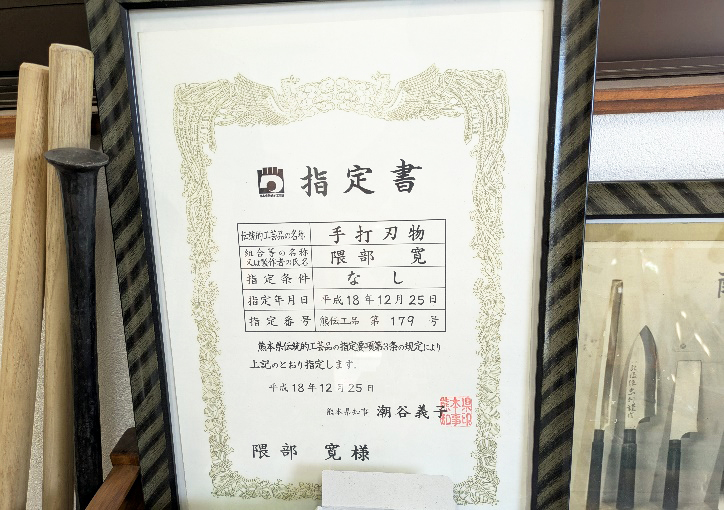 指定書
伝統的工芸品の名称 手打刃物
組合等の名称
又は製作者の氏名 隈部 寛
指定条件 なし
指定年月日 平成18年12月25日
指定番号 熊伝工品 第179号
熊本県伝統的工芸品の指定要項第3条の規定により
上記のとおり指定します。
平成18年12月25日
熊本県知事 潮谷義子
隈部 寛様